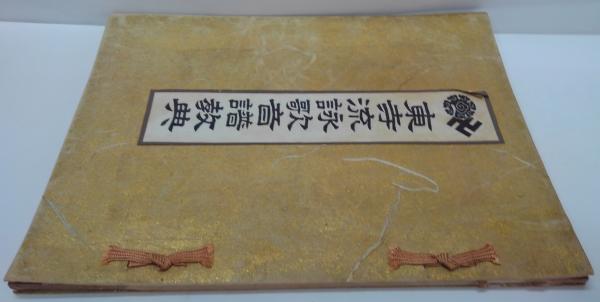 卍東寺流詠歌音譜教典